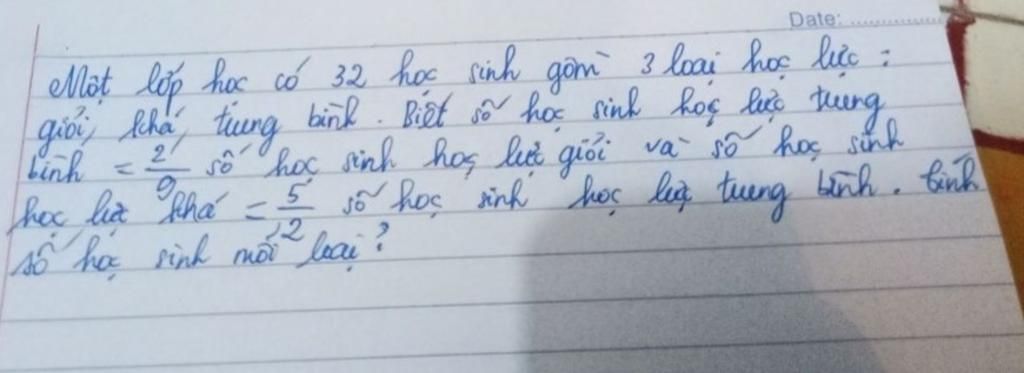 Date: ..................
Một lớp học có 32 học sinh gồm 3 loại học lực :
giỏi, khá, trung bình. Biết số học sinh học lực trung
bình = 2/9 số học sinh học lực giỏi và số học sinh
học lực khá = 5/2 số học sinh học lực trung bình. tính
số học sinh mỗi loại ?